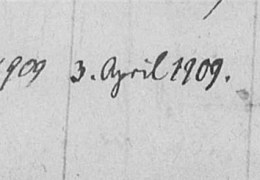 1909 3. April 1909.